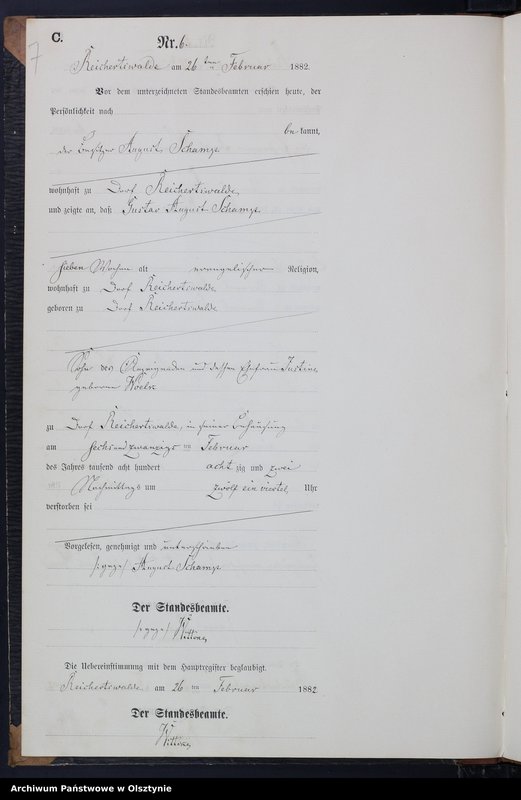 7
C.
Nr. 6.
Reichertswalde am 26 ten Februar 1882.
Vor dem unterzeichneten Standesbeamten erschien heute, der
Persönlichkeit nach
be kannt,
der Besitzer August Schamp
wohnhaft zu Dorf Reichertswalde
und zeigte an, daß Gustav August Schamp
sieben Wochen alt evangelischer Religion,
wohnhaft zu Dorf Reichertswalde
geboren zu Dorf Reichertswalde
Sohn des Anzeigenden und dessen Ehefrau Justine
geborene Woelk
zu Dorf Reichertswalde, in seiner Behausung
am sechsundzwanzigs ten Februar
des Jahres tausend acht hundert acht zig und zwei
Nachmittags um zwölf ein viertel Uhr
verstorben sei
Vorgelesen, genehmigt und unterschrieben
/:gez:/ August Schamp
Der Standesbeamte.
/:gez:/
Die Uebereinstimmung mit dem Hauptregister beglaubigt.
Reichertswalde am 26 ten Februar 1882
Der Standesbeamte.
Archiwum Państwowe w Olsztynie